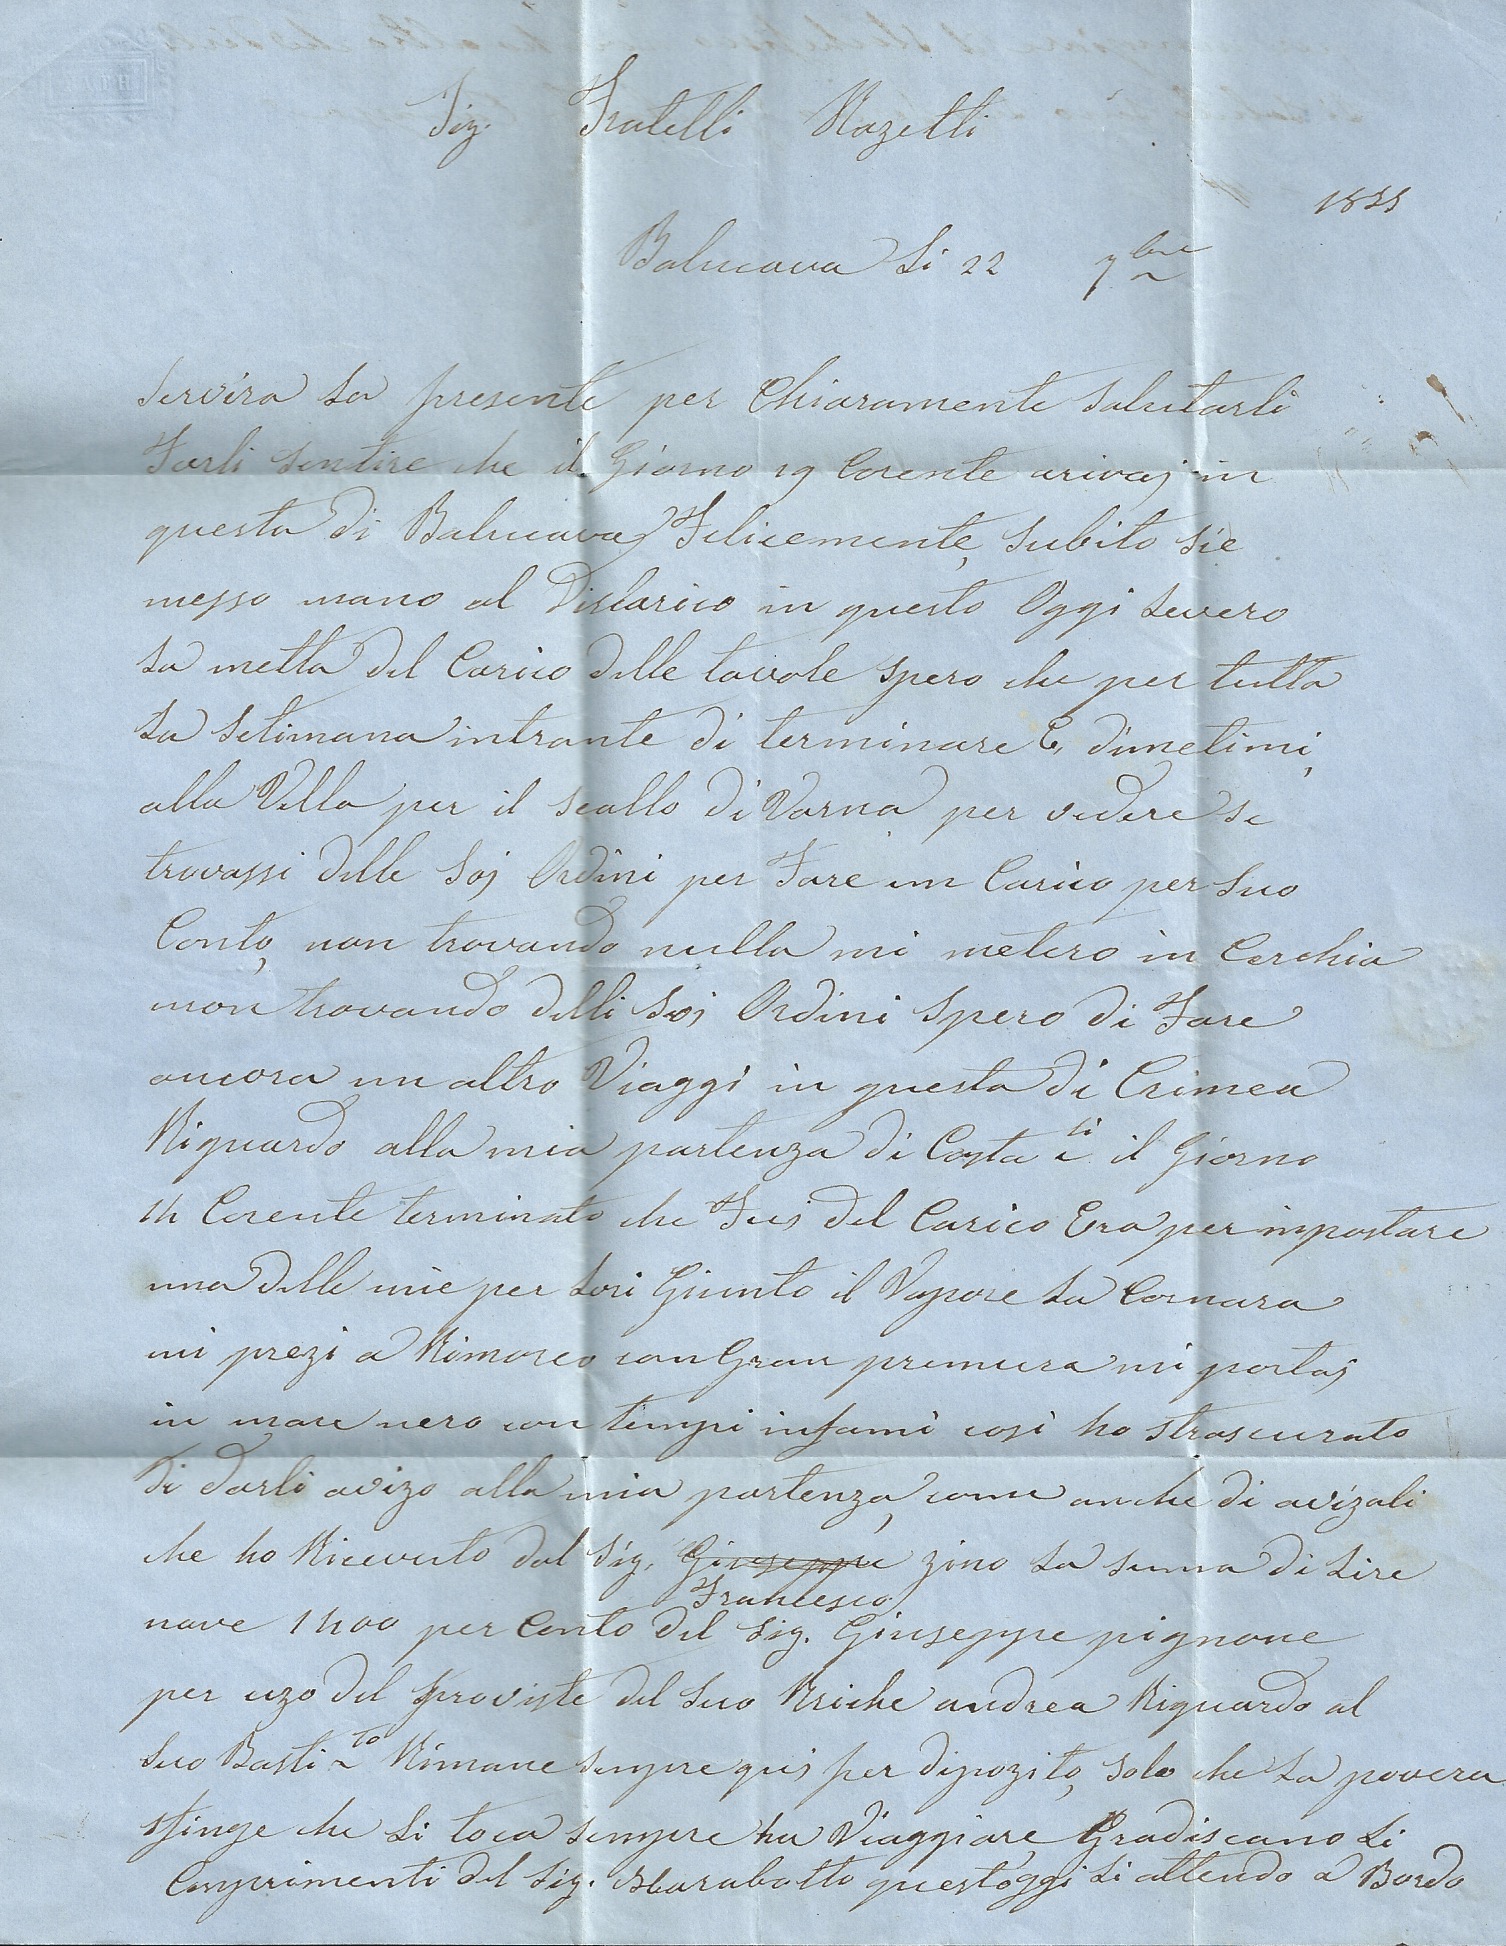 Sig. Fratelli Razetti
1855
Balucava Li 22 7bre
Servira La presente per Chiaramente Salutarli
Farli Sentire che il Giorno 19 Corente arivaj in
questa di Balucava Felicemente, Subito Sie
messo mano al Discarico in questo Oggi Levero
La metta del Carico delle tavole Spero che per tutta
La Setimana intrante di terminare E, dimetimi,
alla Vella per il Scallo di Varna per vedere Se
trovassi delle Soj Ordini per Fare un Carico per Suo
Conto, non trovando nulla mi metero in Cerchia
non trovando delli Soj Ordini Spero di Fare
ancora un altro Viaggi in questa di Crimea
Riguardo alla mia partenza di Costa li il Giorno
14 Corente terminato che Fui del Carico Era per inpostare
una delle mie per Lori Giunto il Vapore La Cornara
mi prezi a Rimorco con Gran premura mi portaj
in mare nero con tempi infami cosi ho strascurato
di darli avizo alla mia partenza, come anche di avizali
che ho Ricevuto dal Sig. Giuseppe zino La suma di Lire
Francesco
nove 1400 per Conto del Sig. Giuseppe pignone
per uzo del proviste del Suo Briche andrea Riguardo al
Suo Basti to Rimane Sempre quij per dipozito, Solo che La povera
sfinge che Li toca sempre ha Viaggiare, Gradiscano Li
Conprimenti del Sig. Marabotto questoggi Li attendo a Bordo